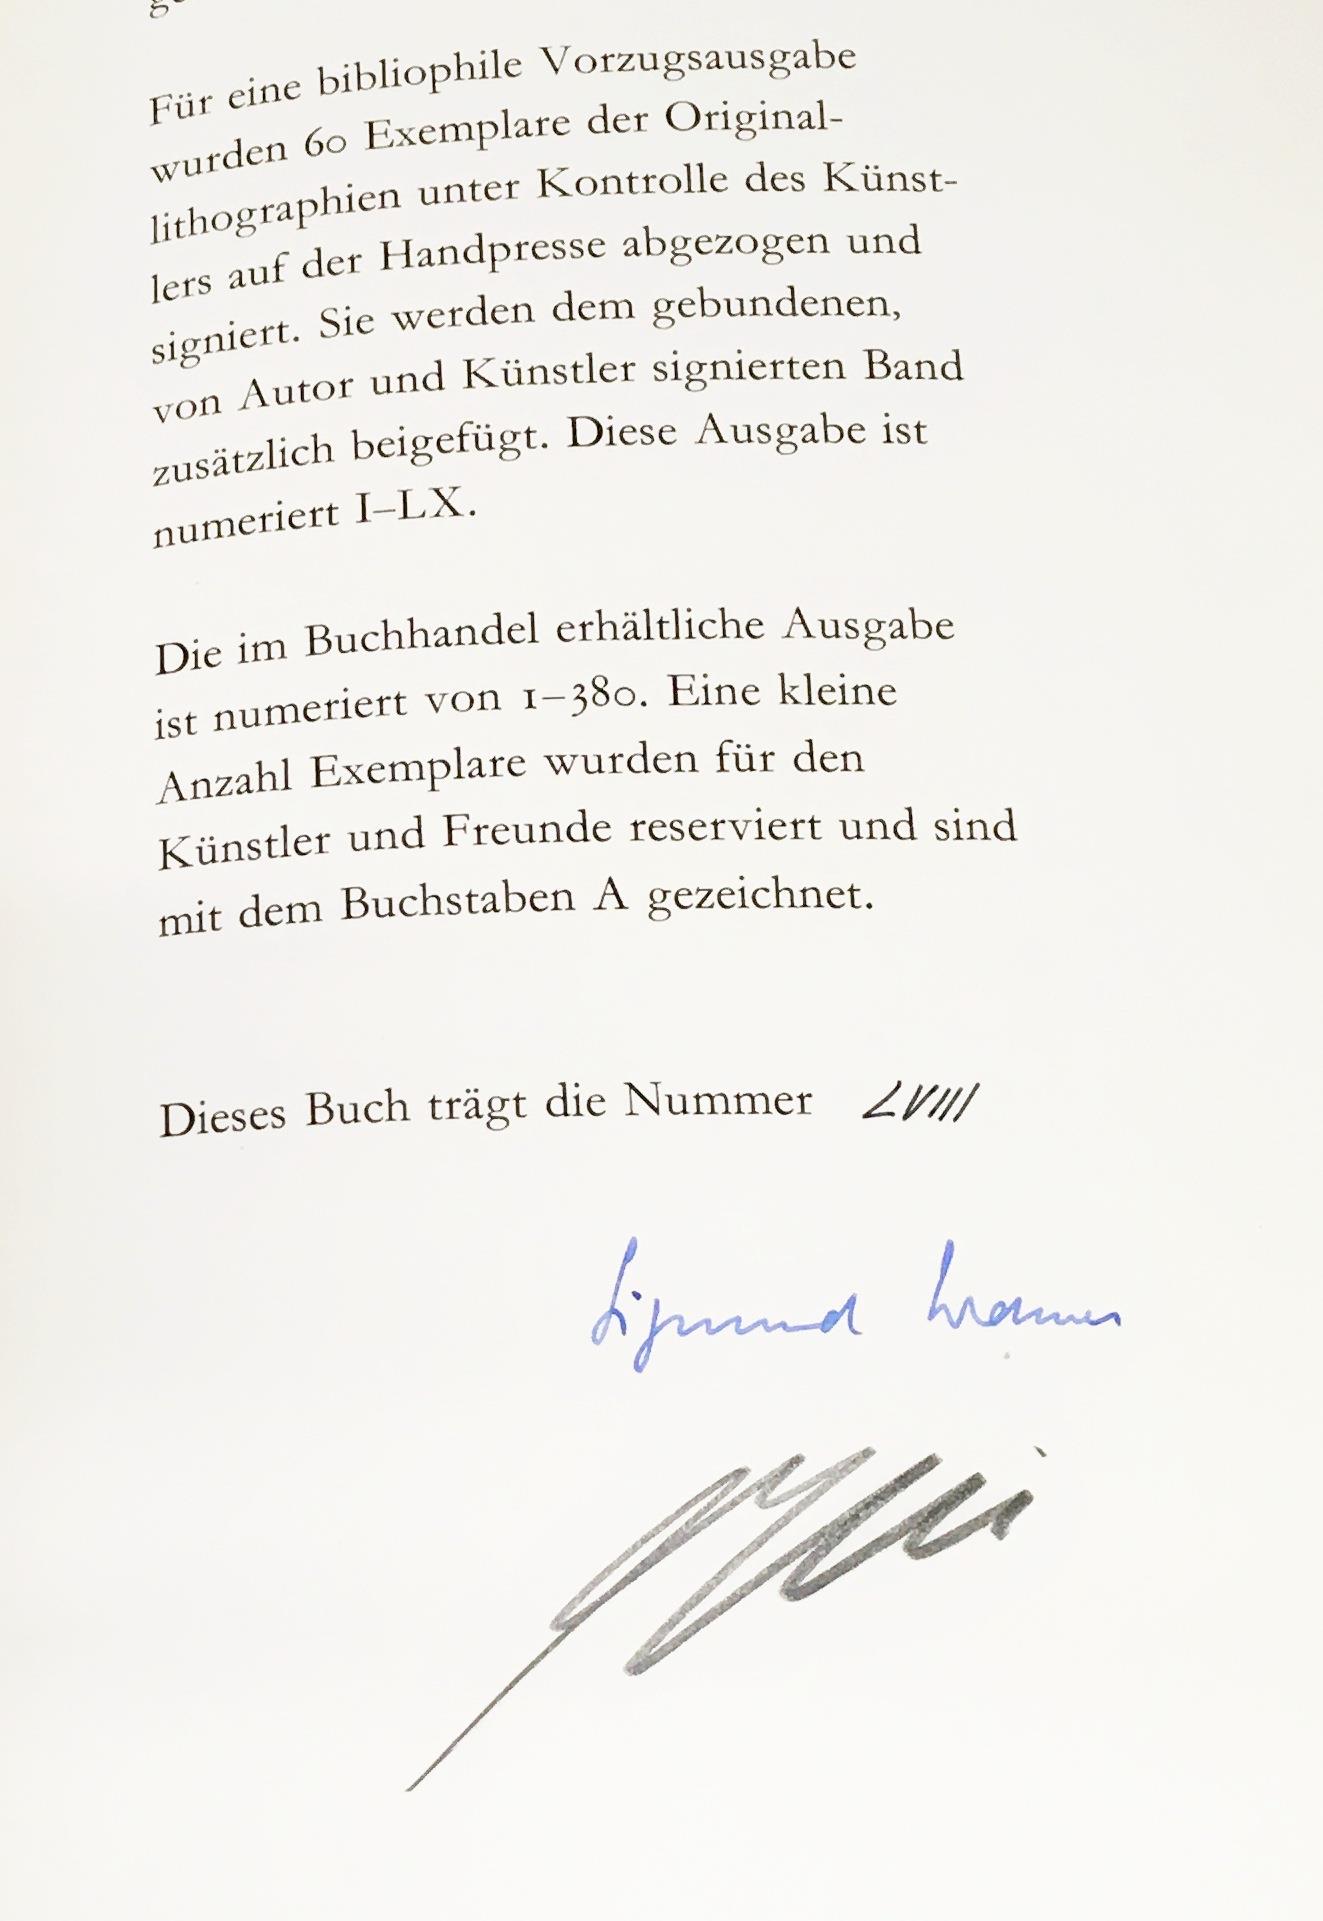 Für eine bibliophile Vorzugsausgabe
wurden 60 Exemplare der Original-
lithographien unter Kontrolle des Künst-
lers auf der Handpresse abgezogen und
signiert. Sie werden dem gebundenen,
von Autor und Künstler signierten Band
zusätzlich beigefügt. Diese Ausgabe ist
numeriert I–LX.
Die im Buchhandel erhältliche Ausgabe
ist numeriert von 1–380. Eine kleine
Anzahl Exemplare wurden für den
Künstler und Freunde reserviert und sind
mit dem Buchstaben A gezeichnet.
Dieses Buch trägt die Nummer LVIII
Sigmund